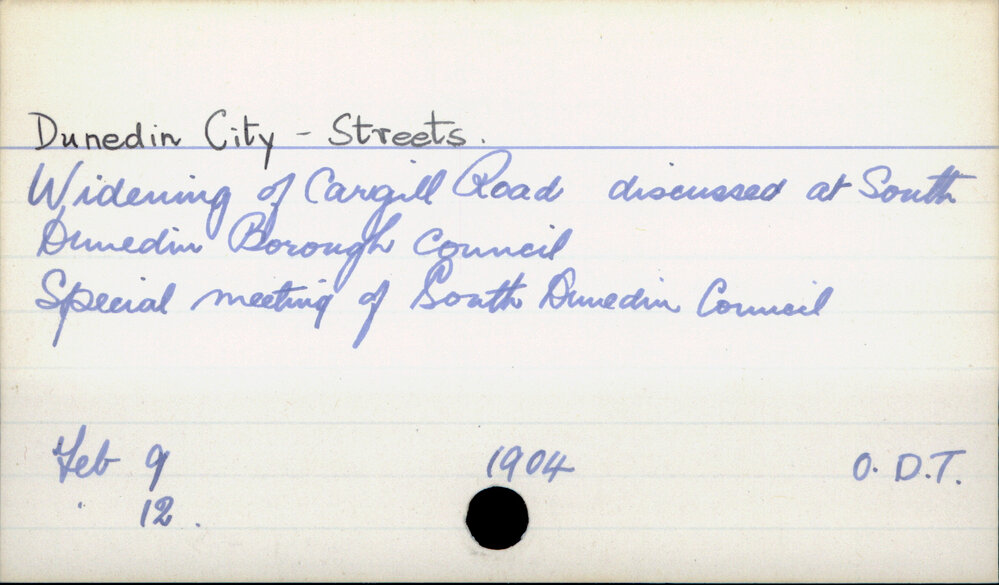 Dunedin City - Streets.
Widening of Cargill Road discussed at South
Dunedin Borough Council
Special meeting of South Dunedin Council
Feb 9 1904 O. D.T.
" 12.